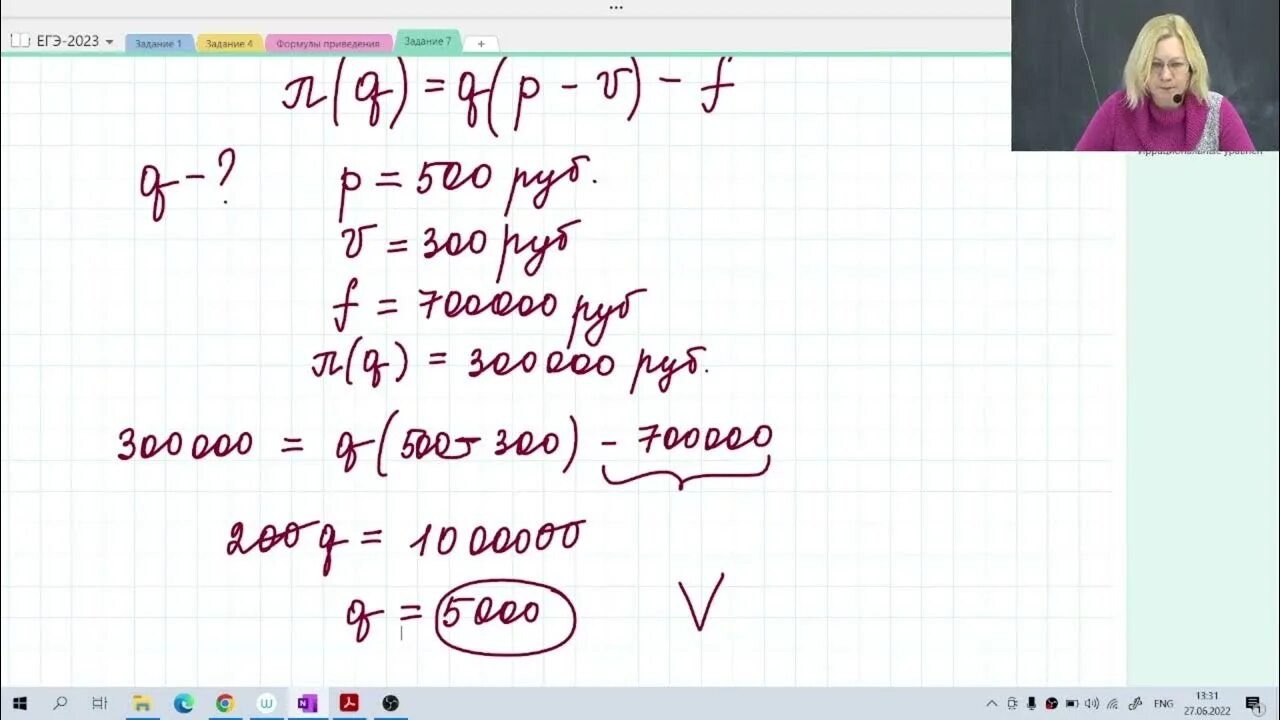 ЕГЭ-2023 Задание 1 Задание 4 Формулы приведения Задание 7 +
π(q) = q(p - v) - f
q - ? p = 500 руб.
v = 300 руб
f = 700000 руб
π(q) = 300000 руб.
300000 = q(500 - 300) - 700000
200q = 1000000
q = 5000 V
Иррациональные уравнен
ENG 13:31
27.06.2022